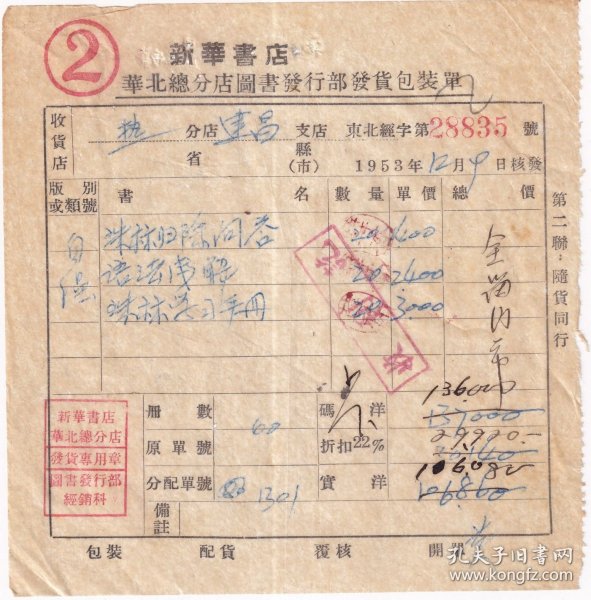 ②
新華書店
華北總分店圖書發行部發貨包裝單
收貨店 热 分店 建昌 支店 東北經字第28835號
省 縣(市) 1953年12月9日核發
版別或類號 書名 數量 單價 總價
珠祘归除问答 20 1400
语法 20 2400
珠祘学习手册 20 3000
第二聯：隨貨同行
冊數 60 碼洋 136.000
原單號 折扣22% 29.920.-
分配單號 1301 實洋 106080
備註
新華書店
華北總分店
發貨專用章
圖書發行部
經銷科
包裝 配貨 覆核 開單
孔夫子旧书网
www.kongfz.com